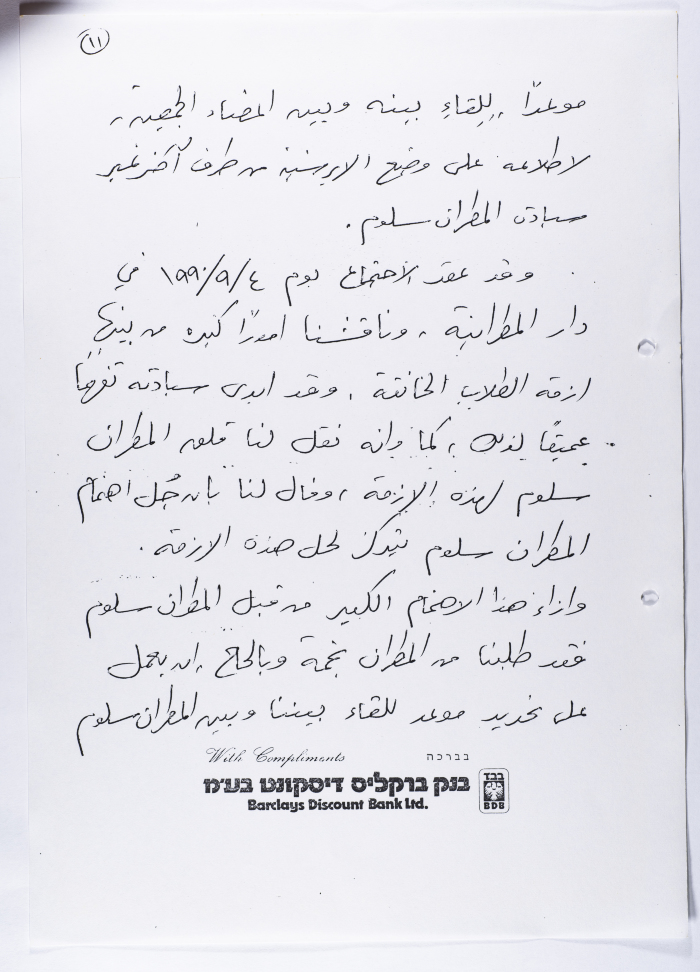 ١١
موعداً للقاءِ بينه وبين اعضاء الجمعية،
لاطلاعه على وضع الابرشية من طرف آخر غير
سيادة المطران سلوم.
وقد عقد الاجتماع يوم ١٩٩٠/٩/٤ في
دار المطرانية، وناقشنا اموراً كثيره من بينها
ازمة الطلاب الخانقة، وقد ابدى سيادته تفهماً
عميقاً لذلك، كما وانه نقل لنا قلق المطران
سلوم لهذه الازمة، وقال لنا بان جُل اهتمام
المطران سلوم يتركز لحل هذه الازمة.
وازاء هذا الاهتمام الكبير من قبل المطران سلوم
فقد طلبنا من المطران نجمة وبالحاح، ان يعمل
على تحديد موعد للقاء بيننا وبين المطران سلوم
With Compliments בברכה
בנק ברקליס דיסקונט בע״מ
Barclays Discount Bank Ltd.
בבד
BDB